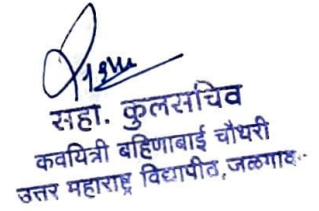 सहा. कुलसचिव
कवयित्री बहिणाबाई चौधरी
उत्तर महाराष्ट्र विद्यापीठ, जळगाव.